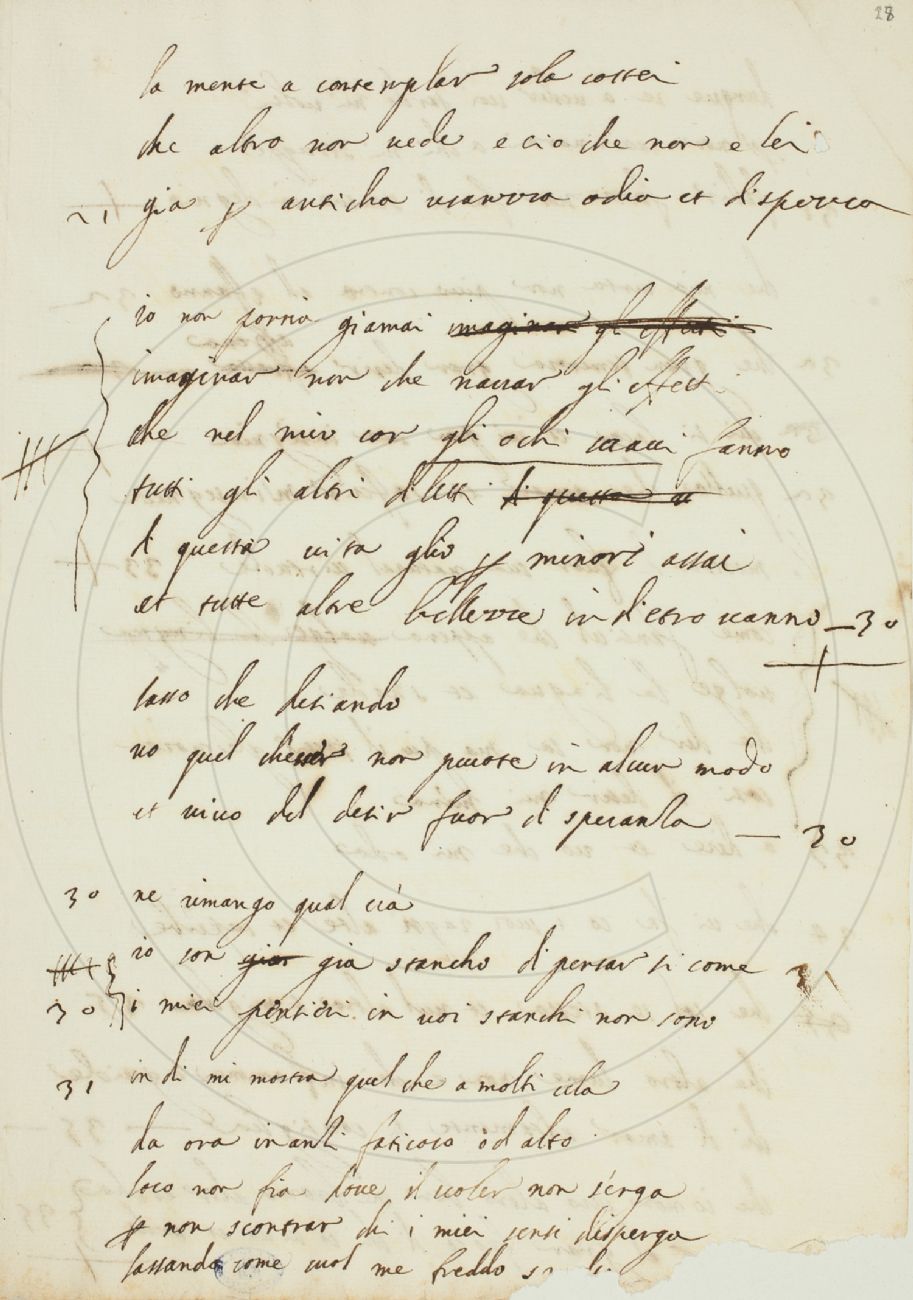 28
la mente a contemplar sola costei
che altro non vede e cio che non e lei
21 gia p anticha usanza odia et disprecza
io non poria giamai imaginar gli effetti
imaginar non che narrar gli effecti
che nel mio cor gli ochi suavi fanno
tutti gli altri diletti di questa ui
di questa vita gho p minori assai
et tutte altre bellezze indietro vanno 30
lasso che desiando
vo quel che non puote in alcun modo
et vivo del desir fuor di speranza 30
30 ne rimango qual era
io son gia stancho di pensar si come
30 i miei pensieri in voi stanchi non sono
31 indi mi mostra quel che a molti cela
da ora inanzi faticoso od alto
loco non fia dove il voler non s'erga
p non scontrar chi i miei sensi disperga
lassando come suol me freddo